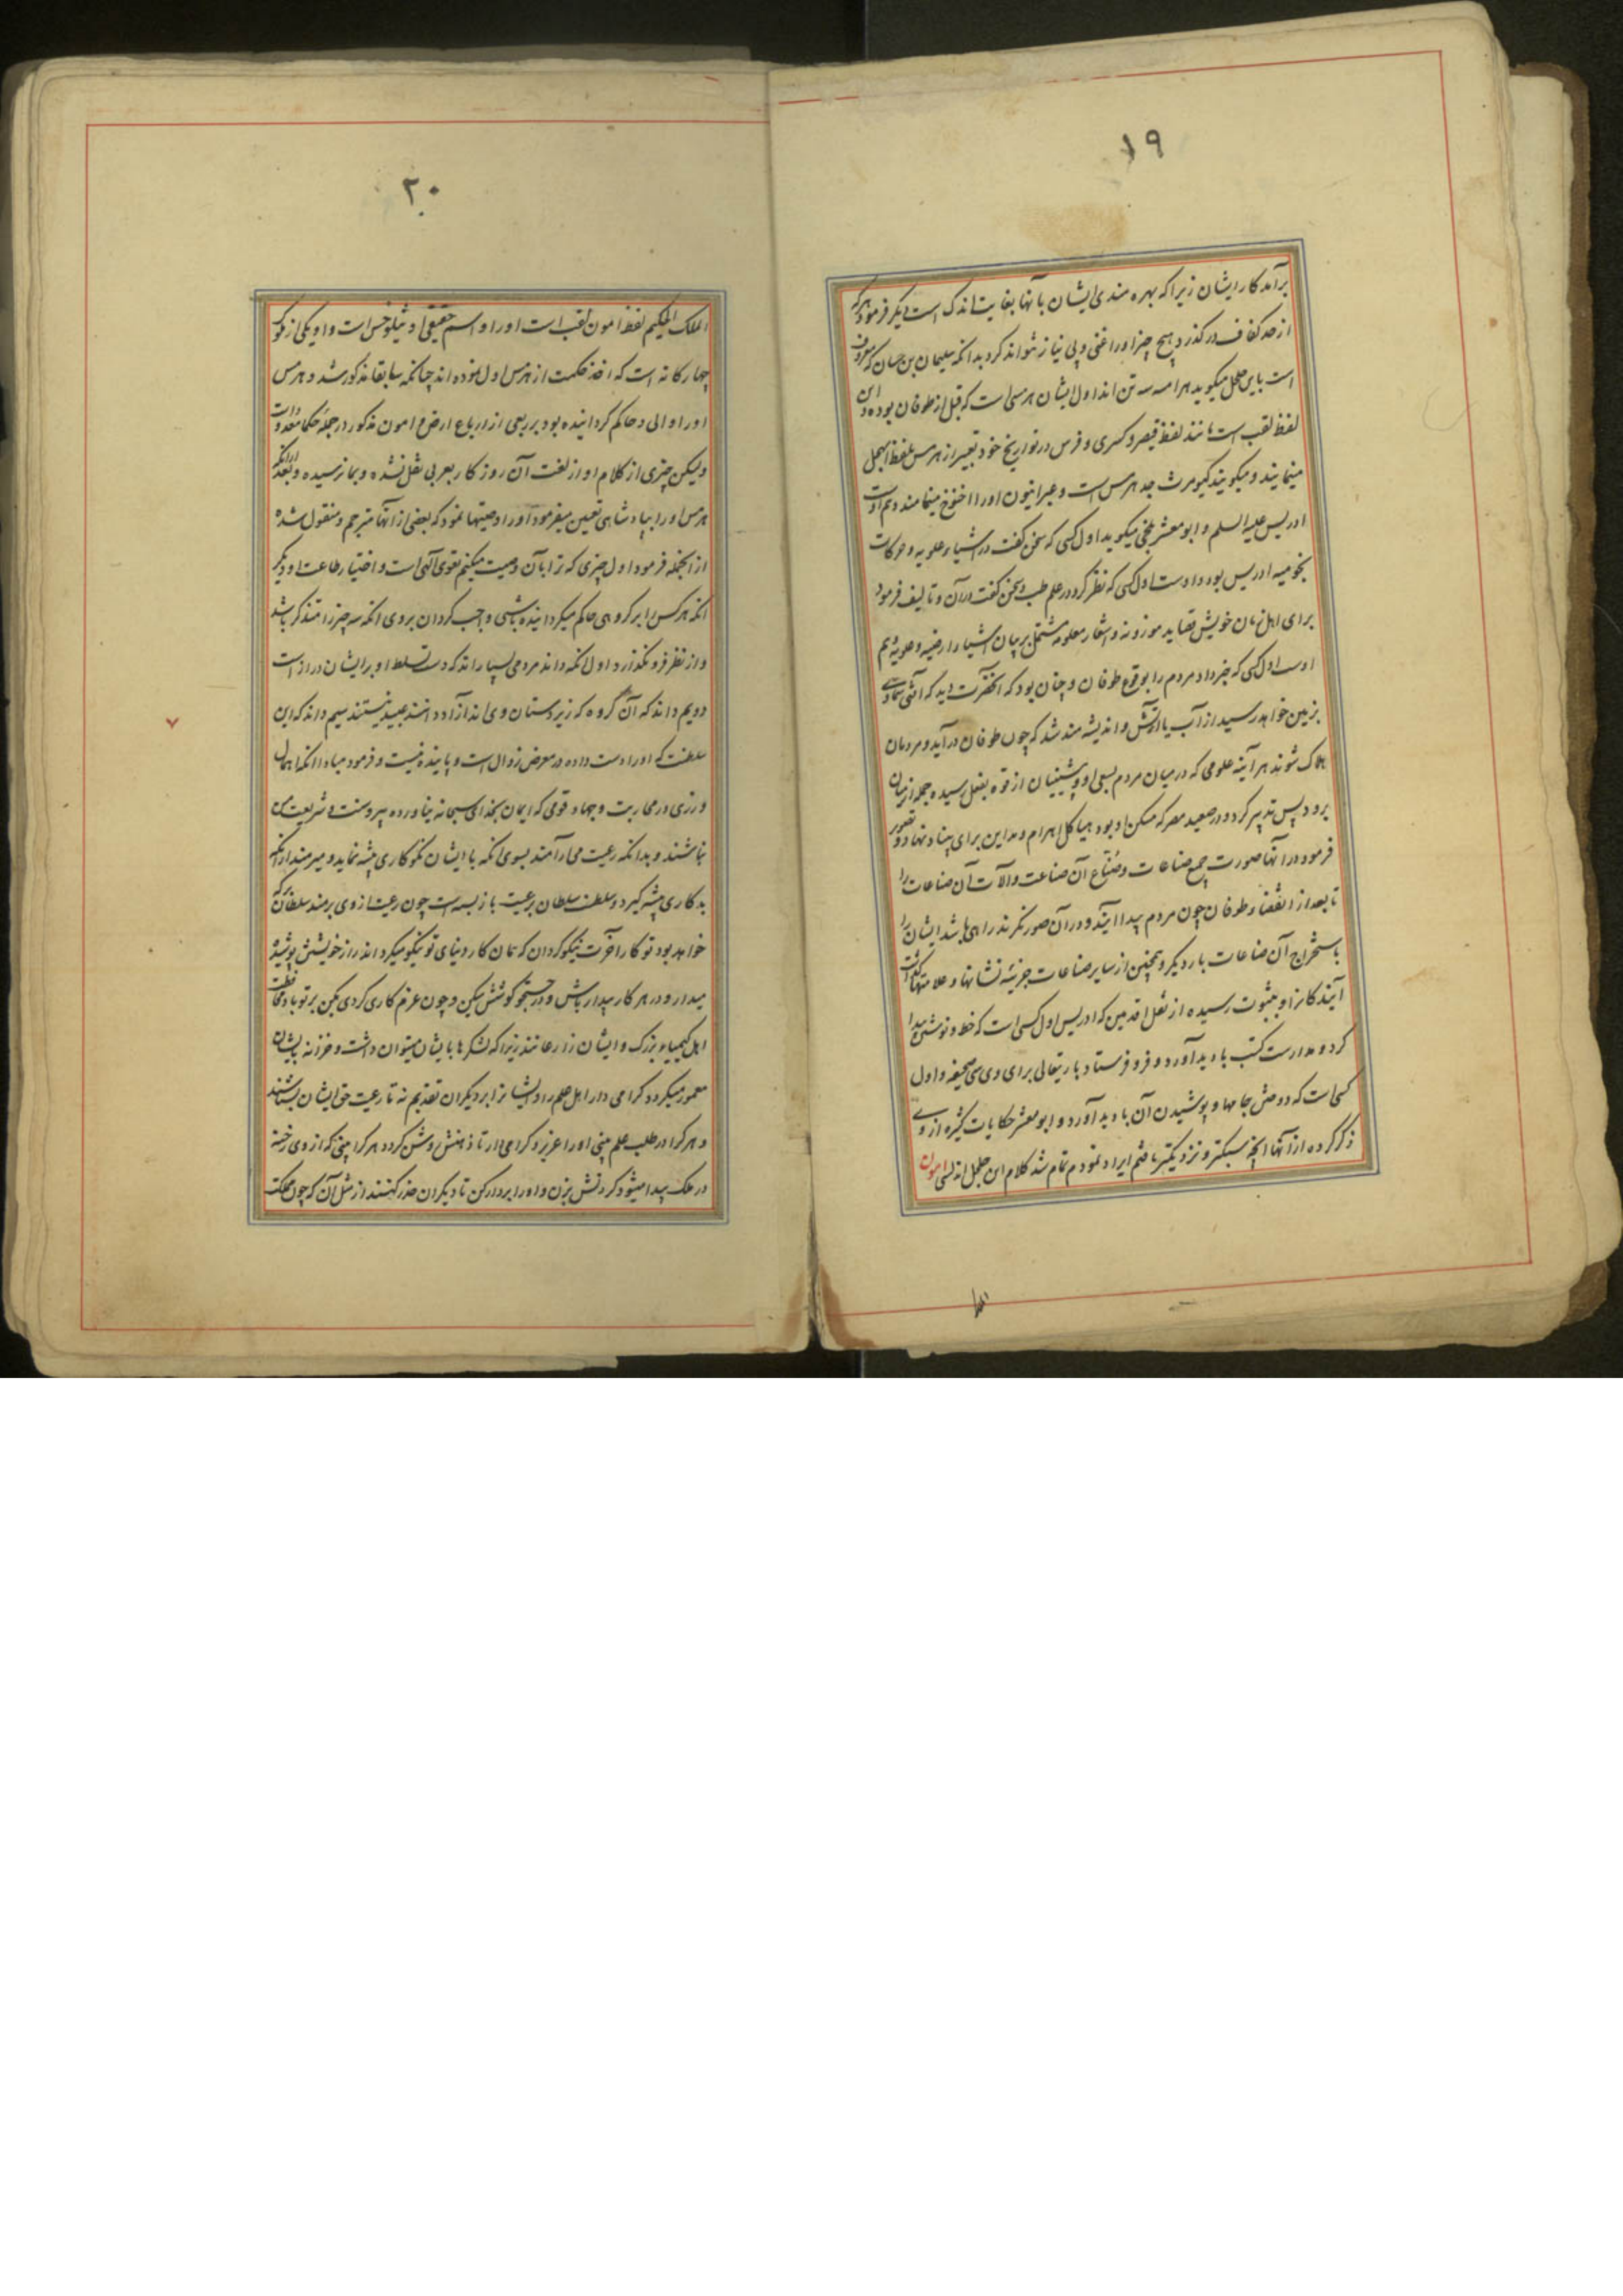 ۱۹
برآمد کار ایشان زیرا که بهره مندی ایشان بآنها بغایت اندک است دیگر فرمود هر که
از حد کفاف درگذرد هیچ چیز او را غنی و بی نیاز نتواند کرد بدانکه سلیمان بن حسان که معروف
است بابن جلجل میگوید هرامسه سه تن اند اول ایشان هرمسی است که قبل از طوفان بوده و این
لفظ لقب است مانند لفظ قیصر و کسری و فرس در تواریخ خود تعبیر از هرمس بلفظ ابهجل
مینمایند و میگویند کیومرث جد هرمس است و عبرانیون او را اخنوخ مینامند و هم اوست
ادریس علیه السلم و ابو معشر بلخی میگوید اول کسی که سخن گفت در اشیاء علویه و حرکات
نجومیه ادریس بود و اوست اول کسی که نظر کرد در علم طب و سخن گفت در آن و تالیف فرمود
برای اهل زمان خویش قصاید موزونه و اشعار معلومه مشتمل بر بیان اشیاء ارضیه و علویه و هم
اوست اول کسی که خبر داد مردم را بوقوع طوفان و چنان بود که آنحضرت دید که آفتی سماوی
بزمین خواهد رسید از آب یا آتش و اندیشه مند شد که چون طوفان درآید و مردمان
هلاک شوند هر آینه علومی که در میان مردم بسعی او و پیشینیان از قوه بفعل رسیده جمله از میان
برود پس تدبیر کرد و در صعید مصر که مسکن او بود هیاکل اهرام و مداین برای بنا نهاد و تصویر
فرمود در آنها صورت جمیع صناعات و صناع آن صناعت و آلات آن صناعات را
تا بعد از انقضاء طوفان چون مردم پیدا آیند و در آن صور نگرند راهی باشد ایشان را
باستخراج آن صناعات بار دیگر و همچنین از سایر صناعات جزئیه نشانها و علامتها گذاشت
آیندگانرا و بثبوت رسیده از نقل اقدمین که ادریس اول کسی است که خط و نوشتن پیدا
کرد و مدارست کتب بادید آورد و فرو فرستاد باریتعالی برای وی سی صحیفه و اول
کسی است که دوختن جامها و پوشیدن آن بادید آورد و ابو معشر حکایات کثیره از وی
ذکر کرده از آنها آنچه سبکتر و نزدیکتر یافتم ایراد نمودم تمام شد کلام ابن جلجل اندلسی امون
۲۰
الملک الحکیم لفظ امون لقب است او را و اسم حقیقی او بسیلوخس است و او یکی از ملوک
چهارگانه است که اخذ حکمت از هرمس اول نموده اند چنانکه سابقا مذکور شد و هرمس
او را والی و حاکم گردانیده بود بر ربعی از ارباع ارض و امون مذکور در جمله حکما معدود است
ولیکن چیزی از کلام او از لغت آن روزگار بعربی نقل نشده و بما نرسیده و بعد از آنکه
هرمس او را بپادشاهی تعیین میفرمود او را وصیتها نمود که بعضی از آنها مترجم و منقول شده
از آنجمله فرمود اول چیزی که ترا بآن وصیت میکنم تقوی الهی است و اختیار طاعت او دیگر
آنکه هر کس را بر گروهی حاکم میگردانیده باشی واجب گردان بر وی آنکه سه چیز را متذکر باشد
و از نظر فرو نگذارد اول آنکه داند مردمی بسیار اند که دست تسلط او بر ایشان دراز است
دویم داند که آن گروه که زیردستان وی اند آزاده اند عبید نیستند سیم داند که این
سلطنت که او را دست داده در معرض زوال است و پاینده نیست و فرمود مبادا آنکه اهمال
ورزی در محاربت و جهاد قومی که ایمان بخدای سبحانه نیاورده پیرو سنت و شریعت من
نباشند و بدانکه رعیت می آرامند بسوی آنکه با ایشان نکوکاری پیشه نماید و میرمند از آنکه
بدکاری پیشه گیرد و سلطنت سلطان برعیت باز بسته است چون رعیت از وی برمند سلطان که
خواهد بود تو کار آخرت نیکو گردان که کار دنیای تو نیکو میگردانند راز خویشتن پوشیده
میدار و در هر کار بیدار باش و در جستجو کوشش میکن و چون عزم کاری کردی بکن بر تو باد محافظت
اهل کیمیاء بزرگ و ایشان زارعانند زیرا که لشکرها بایشان میتوان داشت و خزانه بایشان
معمور میگردد گرامی دار اهل علم را و ایشانرا بر دیگران تقدیم نه تا رعیت حق ایشان بشناسند
و هر کرا در طلب علم بینی او را عزیز و گرامی دار تا ذهنش روشن گردد و هر کرا بینی که از وی رخنه
در ملک پیدا میشود گردنش بزن و او را بردار کن تا دیگران حذر کنند از مثل آن که چون مملکت